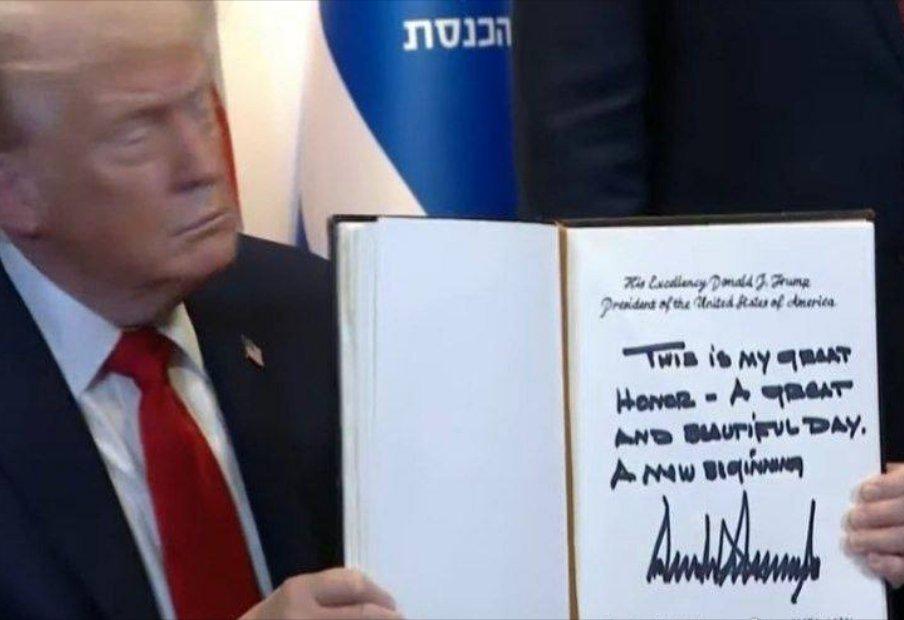 הכנסת
His Excellency Donald J. Trump
President of the United States of America
THIS IS MY GREAT
HONOR - A GREAT
AND BEAUTIFUL DAY.
A NEW BIGINNING